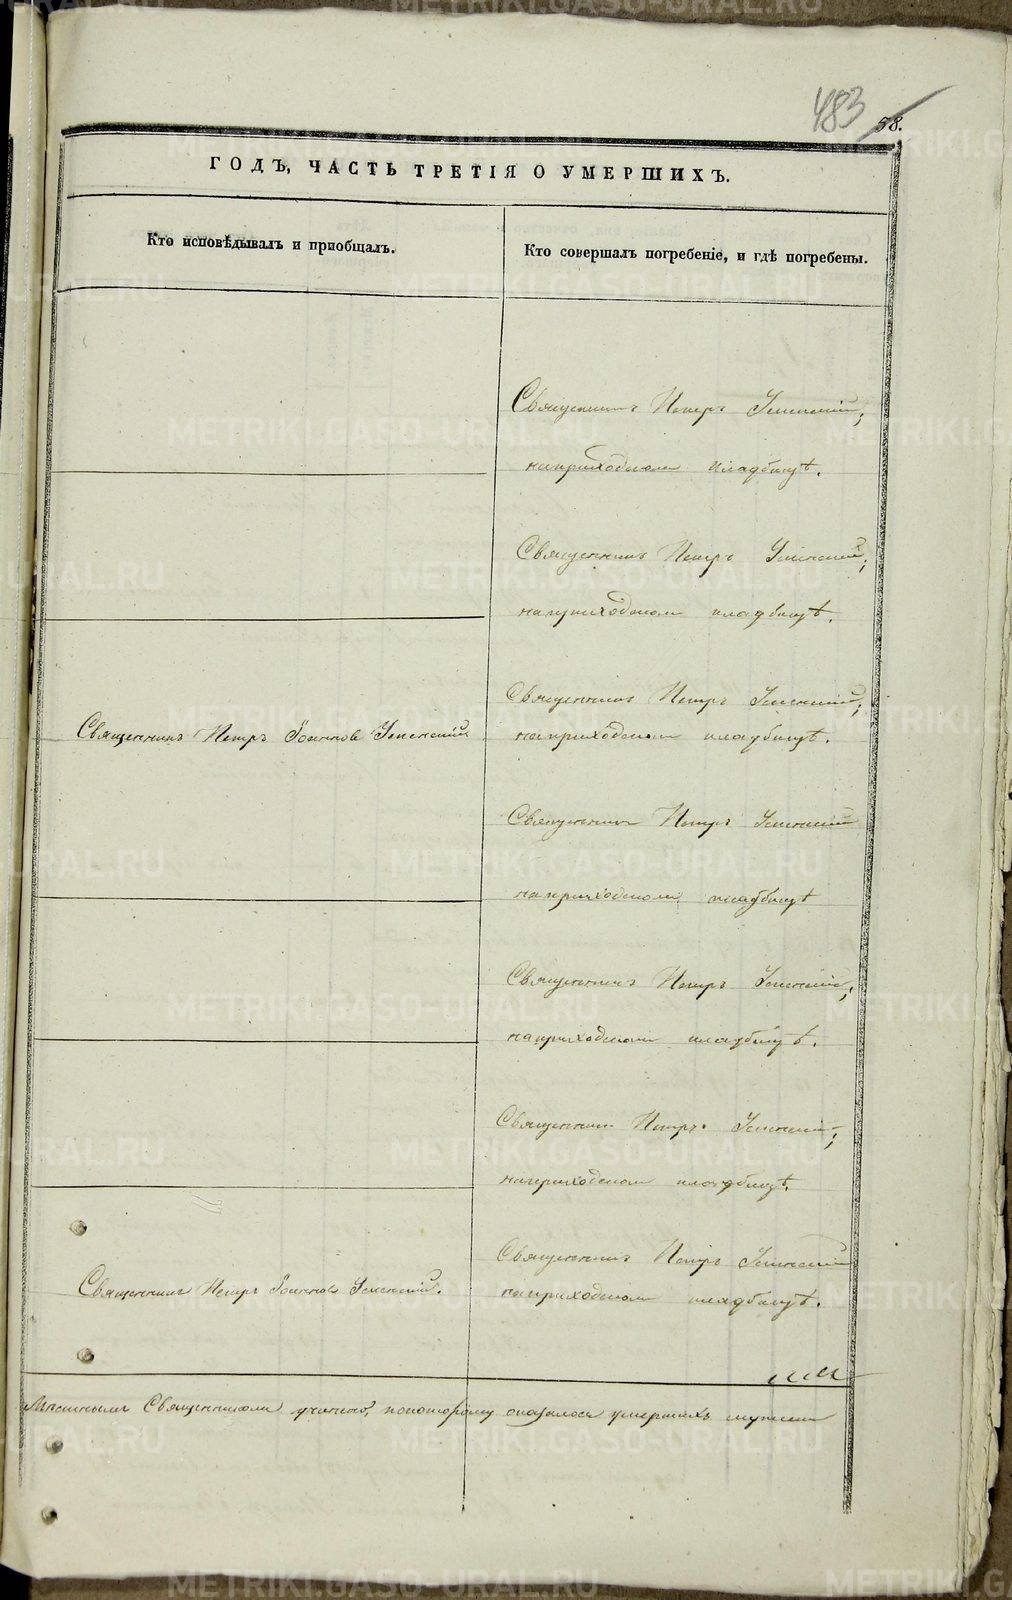 483
58.
ГОДЪ, ЧАСТЬ ТРЕТІЯ О УМЕРШИХЪ.
Кто исповѣдывалъ и пріобщалъ.
Кто совершалъ погребеніе, и гдѣ погребены.
Священникъ Петръ Успенскій;
на приходскомъ кладбищѣ.
Священникъ Петръ Успенскій;
на приходскомъ кладбищѣ.
Священникъ Петръ Успенскій;
на приходскомъ кладбищѣ.
Священникъ Петръ Іоанновъ Успенскій
Священникъ Петръ Успенскій
на приходскомъ кладбищѣ
Священникъ Петръ Успенскій;
на приходскомъ кладбищѣ.
Священникъ Петръ Успенскій;
на приходскомъ кладбищѣ.
Священникъ Петръ Успенскій
на приходскомъ кладбищѣ.
Священникъ Петръ Іоанновъ Успенскій.
Священникомъ учинено, по которому оказалось умершихъ мужеска
METRIKI.GASO-URAL.RU